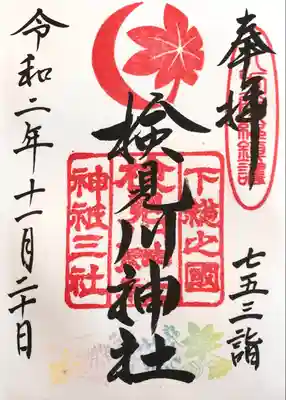 奉拝
七五三詣
下總之國
検見川神社
神祇三社
令和二年十一月二十日